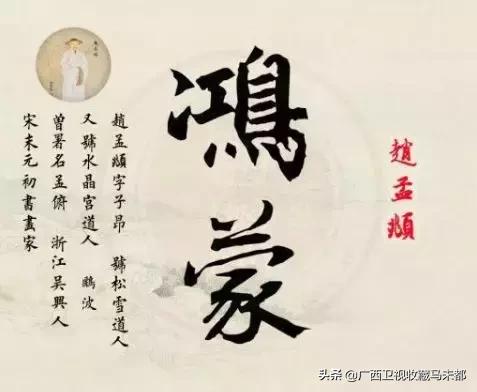 趙孟頫
鴻蒙
趙孟頫字子昂 號松雪道人
又號水晶宮道人 鷗波
曾署名孟俯 浙江吳興人
宋末元初書畫家
头条 @广西卫视收藏马未都